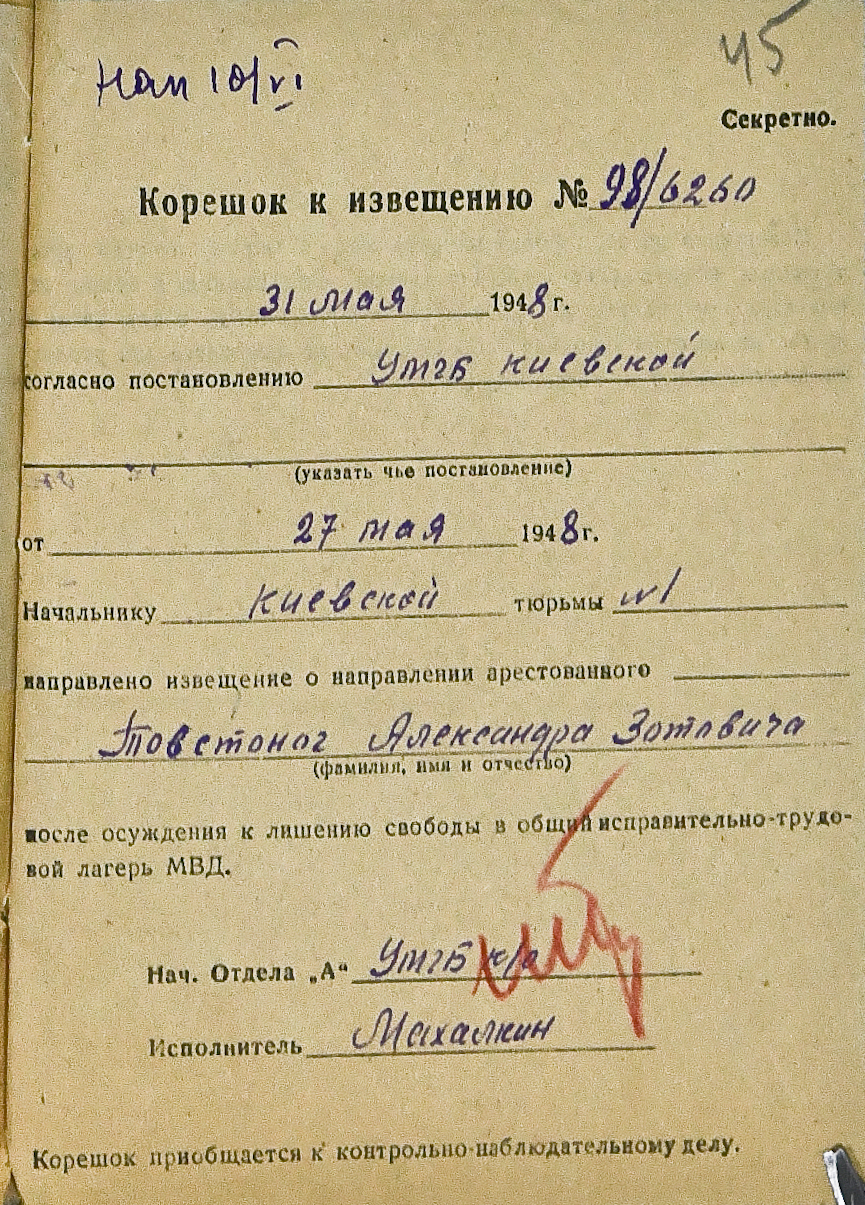 45
Нап 10/VI
Секретно.
Корешок к извещению № 98/6260
31 мая 1948 г.
согласно постановлению УМГБ киевской
(указать чье постановление)
от 27 мая 1948 г.
Начальнику киевской тюрьмы №1
направлено извещение о направлении арестованного
Товстоног Александра Зотовича
(фамилия, имя и отчество)
после осуждения к лишению свободы в общий исправительно-трудо-
вой лагерь МВД.
Нач. Отдела „А“ УМГБ к/о
Исполнитель Махалкин
Корешок приобщается к контрольно-наблюдательному делу.